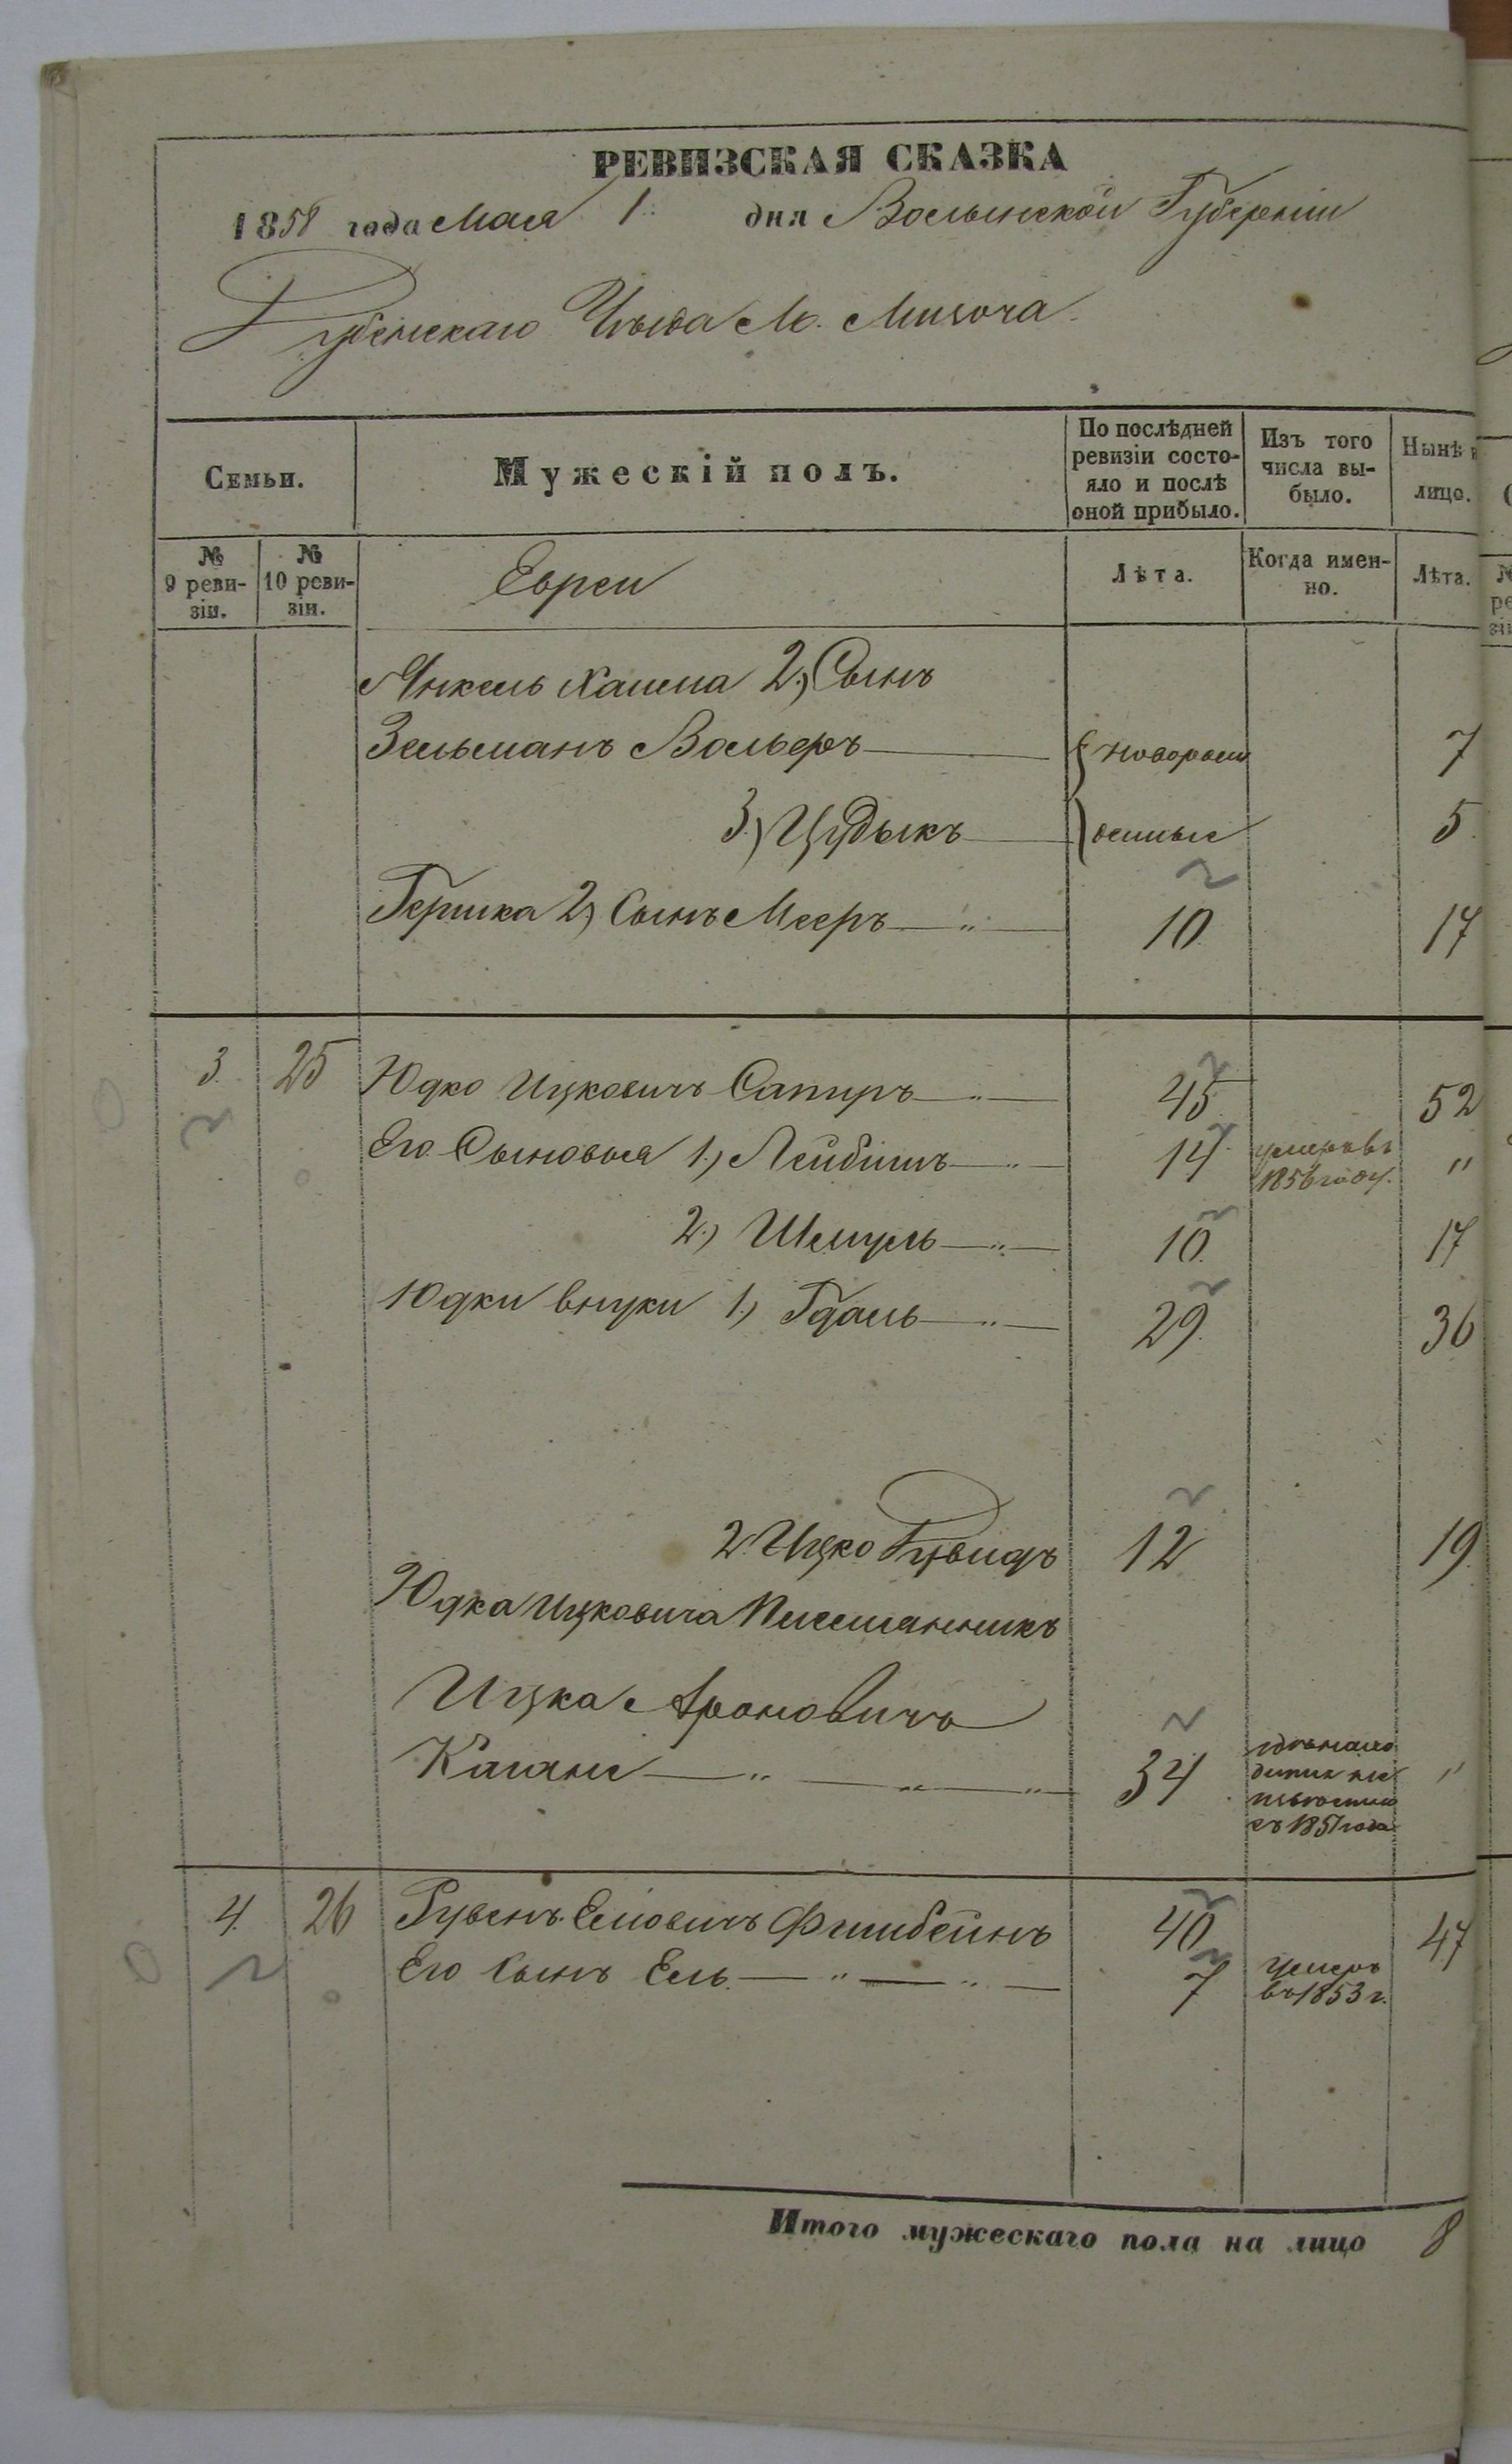 РЕВИЗСКАЯ СКАЗКА
1858 года Мая 1. дня Волынской Губерніи
Дубенскаго Уѣзда М. Мизоча
Семьи.
Мужескій полъ.
По послѣдней ревизіи состояло и послѣ оной прибыло.
Изъ того числа выбыло.
Нынѣ
лицо.
№ 9 ревизіи.
№ 10 ревизіи.
Евреи
Лѣта.
Когда именно.
Лѣта.
Янкель Хаима 2.) Сынъ
Зельманъ Вольфъ новорож 7
3.) Цудыкъ денные 5
Гершка 2) Сынъ Мееръ 10. 17
3. 25 Юдко Ицковичъ Сапиръ 45 52
Его Сыновья 1.) Лейбишъ 14 умеръ въ 1856 году. "
2.) Шмуль 10. 17
Юдки внуки 1.) Гдаль 29. 36
2. Ицко Дувидъ 12 19.
Юдка Ицковича Племянникъ
Ицка Ароновичъ
Кагане 34 съ 1851 года "
4. 26 Рувенъ Елiовичъ Фишбейнъ 40 47
Его Сынъ Ель 7 умеръ въ 1853 г.
Итого мужескаго пола на лицо 8